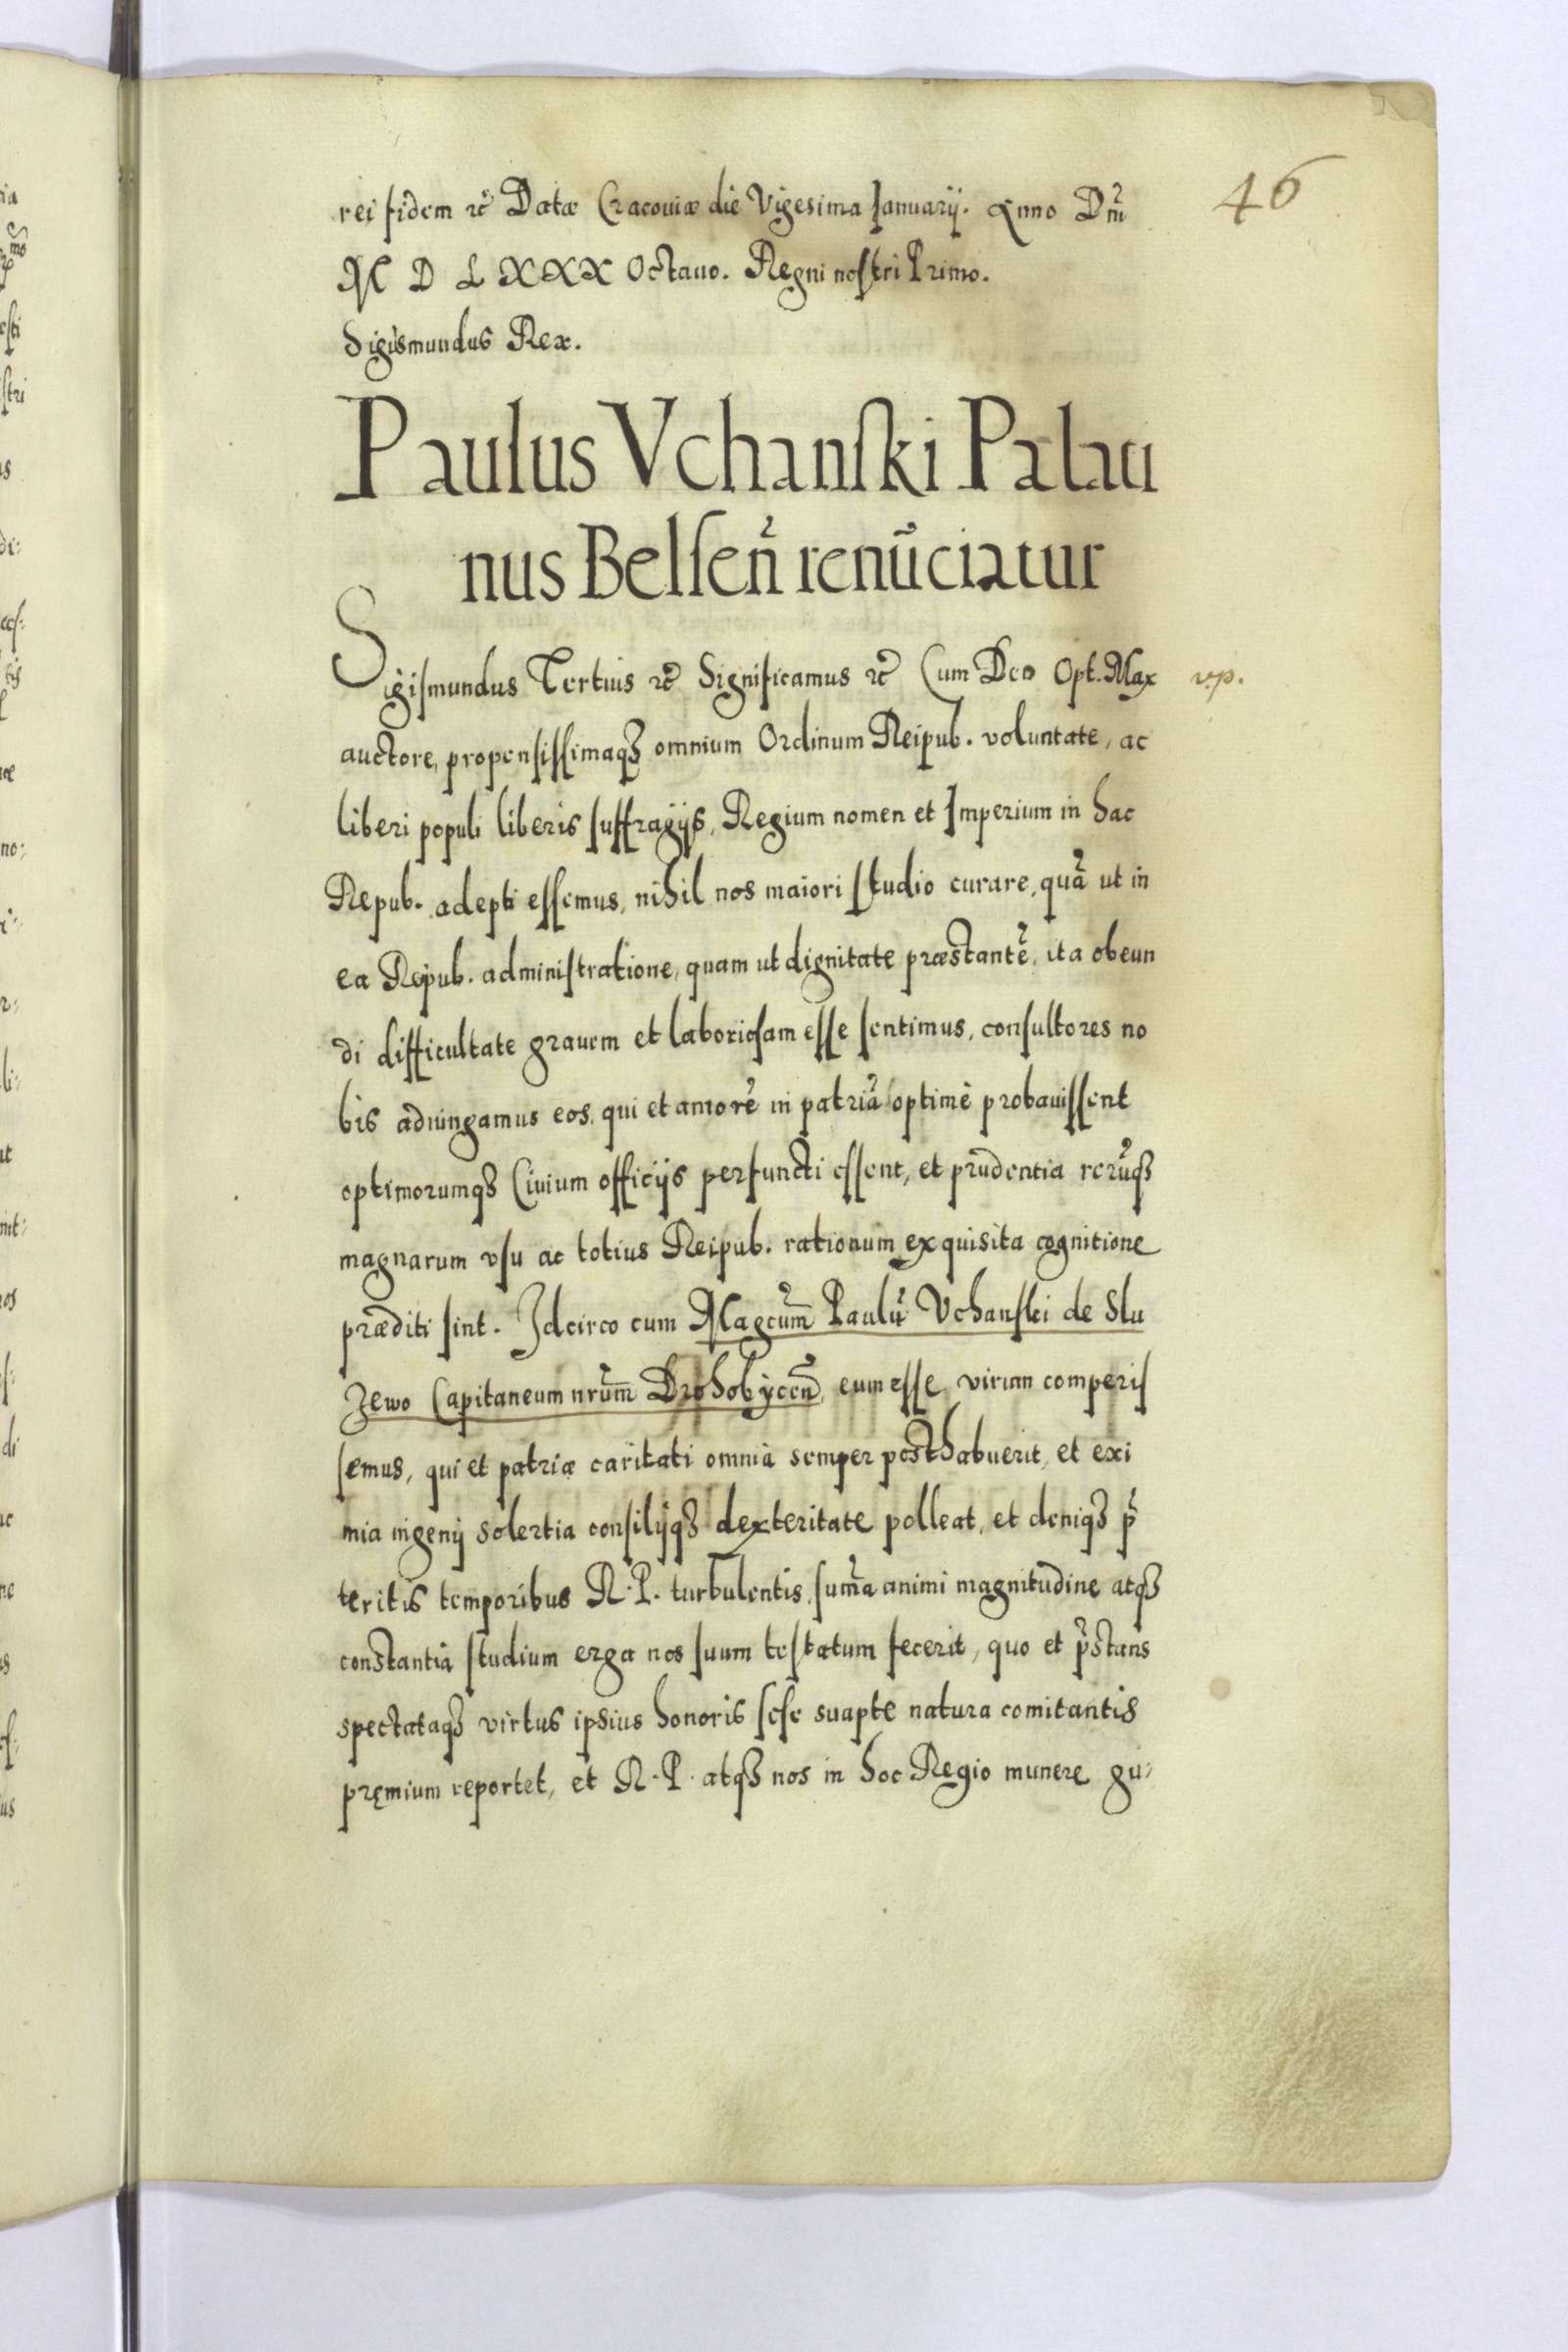 46
rei fidem etc̃ Datæ Cracouiæ die Vigesima Ianuarij. Anno Dñi
M D L XXX Octauo. Regni nostri Primo.
Sigismundus Rex.
Paulus Vchanſki Palati
nus Belſeñ renũciatur
Sigiſmundus Tertius etc̃ Significamus etc̃ Cum Deo Opt. Max
v.p.
auctore, propenſiſſimaqȝ omnium Ordinum Reipub. voluntate, ac
liberi populi liberis ſuffragijs, Regium nomen et Imperium in hac
Repub. adepti eſſemus, nihil nos maiori ſtudio curare, quã ut in
ea Reipub. adminiſtratione, quam ut dignitate præstantẽ, ita obeun
di difficultate grauem et laborioſam eſſe ſentimus, conſultores no
bis adiungamus eos, qui et amorẽ in patriã optimè probauiſſent
optimorumqȝ Ciuium officijs perfuncti eſſent, et prudentia rerũqȝ
magnarum vſu ac totius Reipub. rationum exquisita cognitione
præditi ſint. Idcirco cum Magcum̃ Paulũ Vchanſki de Slu
zewo Capitaneum nrum̃ Drohobyceñ, eum eſſe virum comperiſ
ſemus, qui et patriæ caritati omnia semper posthabuerit, et exi
mia ingenij solertia conſilijqȝ dexteritate polleat, et deniqȝ p̃
teritis temporibus R. P. turbulentis, ſum̃a animi magnitudine atqȝ
constantia ſtudium erga nos ſuum teſtatum fecerit, quo et p̃stans
spectataqȝ virtus ipsius honoris ſeſe suapte natura comitantis
pręmium reportet, et R. P. atqȝ nos in hoc Regio munere gu-